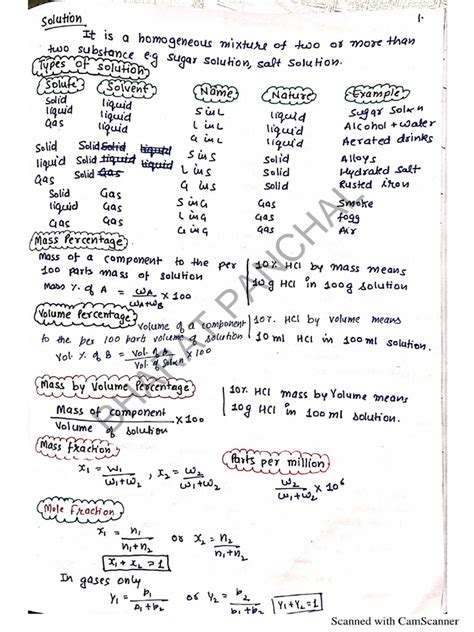 Solution
1.
It is a homogeneous mixture of two or more than
two substance e.g sugar solution, salt solution.
Types of solution
Solute Solvent Name Nature Example
Solid liquid S in L liquid Sugar Solxn
liquid liquid L in L liquid Alcohol + water
Gas liquid G in L liquid Aerated drinks
Solid Solid liquid S in S Solid Alloys
liquid Solid liquid liquid L in S Solid Hydrated Salt
Gas Solid Gas G in S Solid Rusted iron
Solid Gas S in G Gas Smoke
liquid Gas L in G Gas fogg
Gas Gas G in G Gas Air
Mass Percentage
Mass of a component to the per
100 parts mass of solution
Mass %. of A = WA / WA+WB × 100
10% HCl by mass means
10g HCl in 100g solution
Volume Percentage
Volume of a component
to the per 100 parts volume of solution
Vol %. of B = Vol. of A / Vol. of Solxn × 100
10%. HCl by Volume means
10 ml HCl in 100 ml solution.
Mass by Volume Percentage
Mass of component / Volume of solution × 100
10% HCl mass by Volume means
10g HCl in 100 ml solution.
Mass fraction
x1 = w1 / w1+w2 , x2 = w2 / w1+w2
Parts per million
w2 / w1+w2 × 10^6
Mole Fraction
x1 = n1 / n1+n2 or x2 = n2 / n1+n2
x1 + x2 = 1
In gases only
Y1 = p1 / p1+p2 or Y2 = p2 / p1+p2
Y1+Y2=1
BHARAT PANCHAL
Scanned with CamScanner